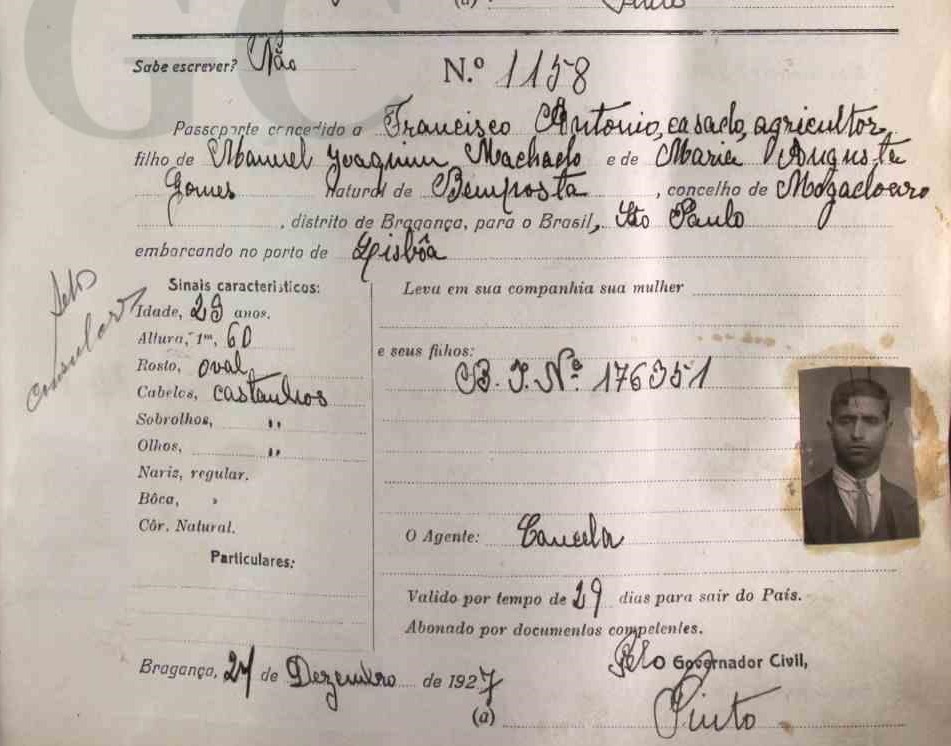 GC
(a) Pinto
Sabe escrever? Não
N.º 1158
Passaporte concedido a Francisco António, casado, agricultor,
filho de Manuel Joaquim Machado e de Maria Augusta
Gomes Natural de Bemposta, concelho de Mogadouro
, distrito de Bragança, para o Brasil, São Paulo
embarcando no porto de Lisbôa
Selo
consular
Sinais caracteristicos:
Idade, 29 anos.
Altura, 1m, 60
Rosto, oval
Cabelos, castanhos
Sobrolhos, "
Olhos, "
Nariz, regular.
Bôca, »
Côr. Natural.
Particulares:
Leva em sua companhia sua mulher
e seus filhos:
B. I. Nº 176351
O Agente: Cancela
Valido por tempo de 29 dias para sair do País.
Abonado por documentos competentes.
Bragança, 27 de Dezembro de 1927
Pelo Governador Civil,
(a) Pinto